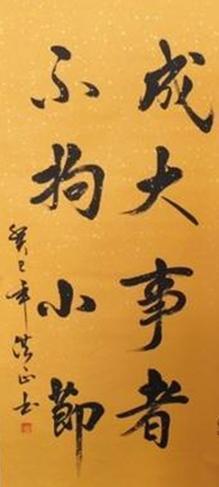 成大事者
不拘小節
癸巳年洪正书